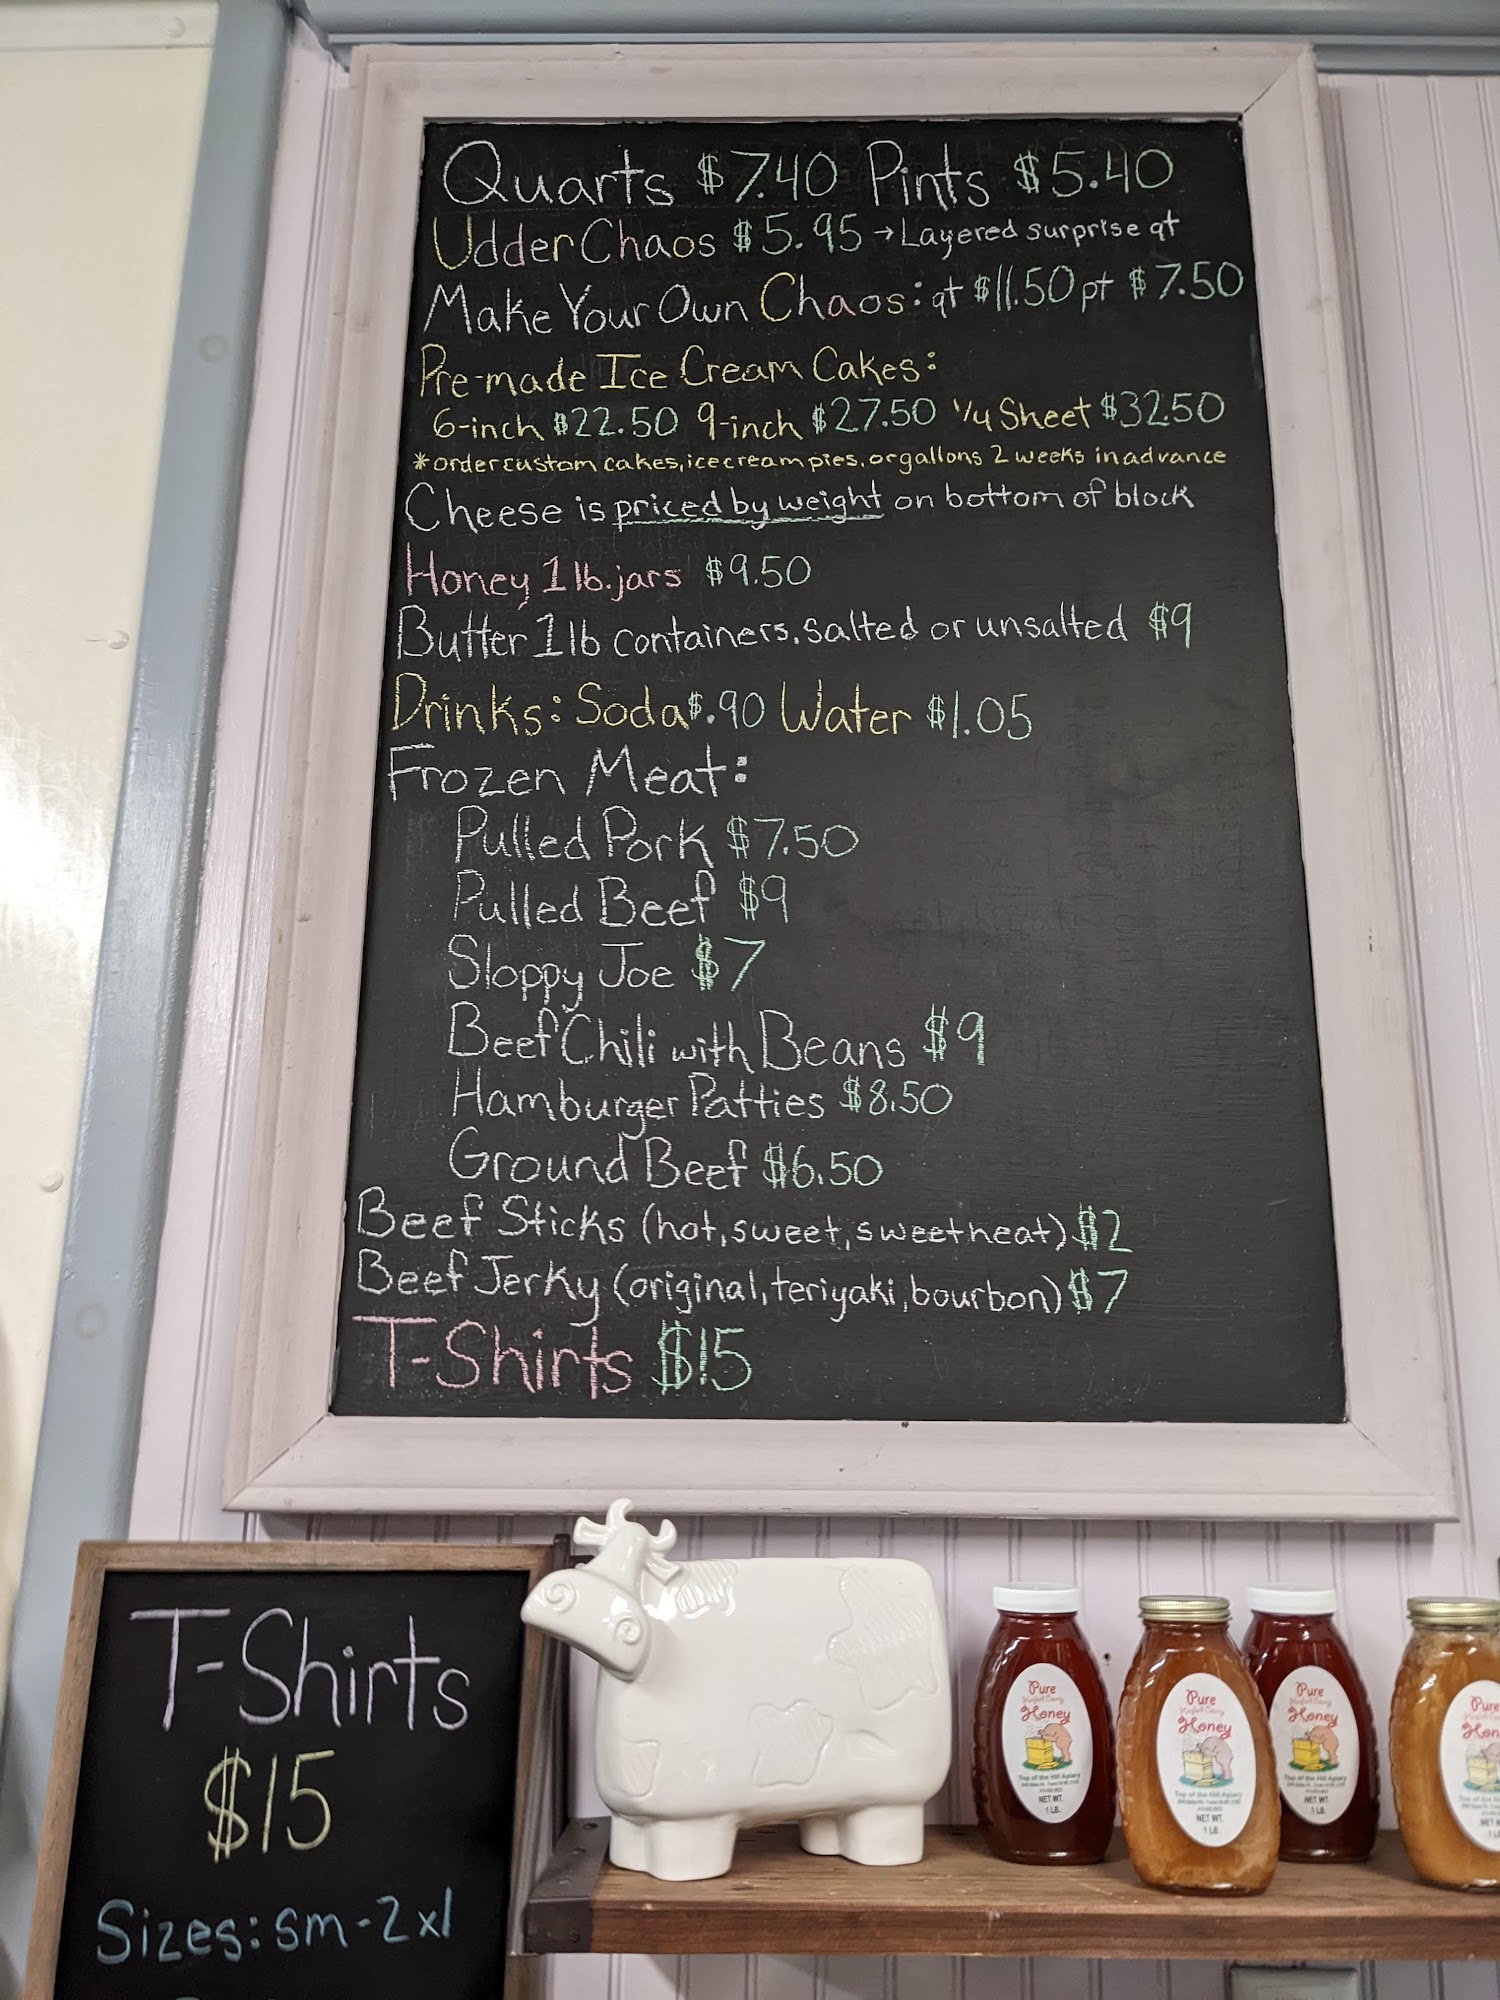 Quarts $7.40 Pints $5.40
Udder Chaos $5.95 → Layered surprise qt
Make Your Own Chaos: qt $11.50 pt $7.50
Pre-made Ice Cream Cakes:
6-inch $22.50 9-inch $27.50 1/4 Sheet $32.50
*order custom cakes, ice cream pies, or gallons 2 weeks in advance
Cheese is priced by weight on bottom of block
Honey, 1 lb. jars $9.50
Butter 1 lb containers, salted or unsalted $9
Drinks: Soda $.90 Water $1.05
Frozen Meat:
Pulled Pork $7.50
Pulled Beef $9
Sloppy Joe $7
Beef Chili with Beans $9
Hamburger Patties $8.50
Ground Beef $6.50
Beef Sticks (hot, sweet, sweet heat) $2
Beef Jerky (original, teriyaki, bourbon) $7
T-Shirts $15
T-Shirts
$15
Sizes: sm-2xl
Pure
Harford County
Honey
Top of the Hill Apiary
NET WT.
1 LB.
Pure
Harford County
Honey
Top of the Hill Apiary
NET WT.
1 LB.
Pure
Harford County
Honey
Top of the Hill Apiary
NET WT.
1 LB.
Pure
Hon
Top of the
NET W
1 L